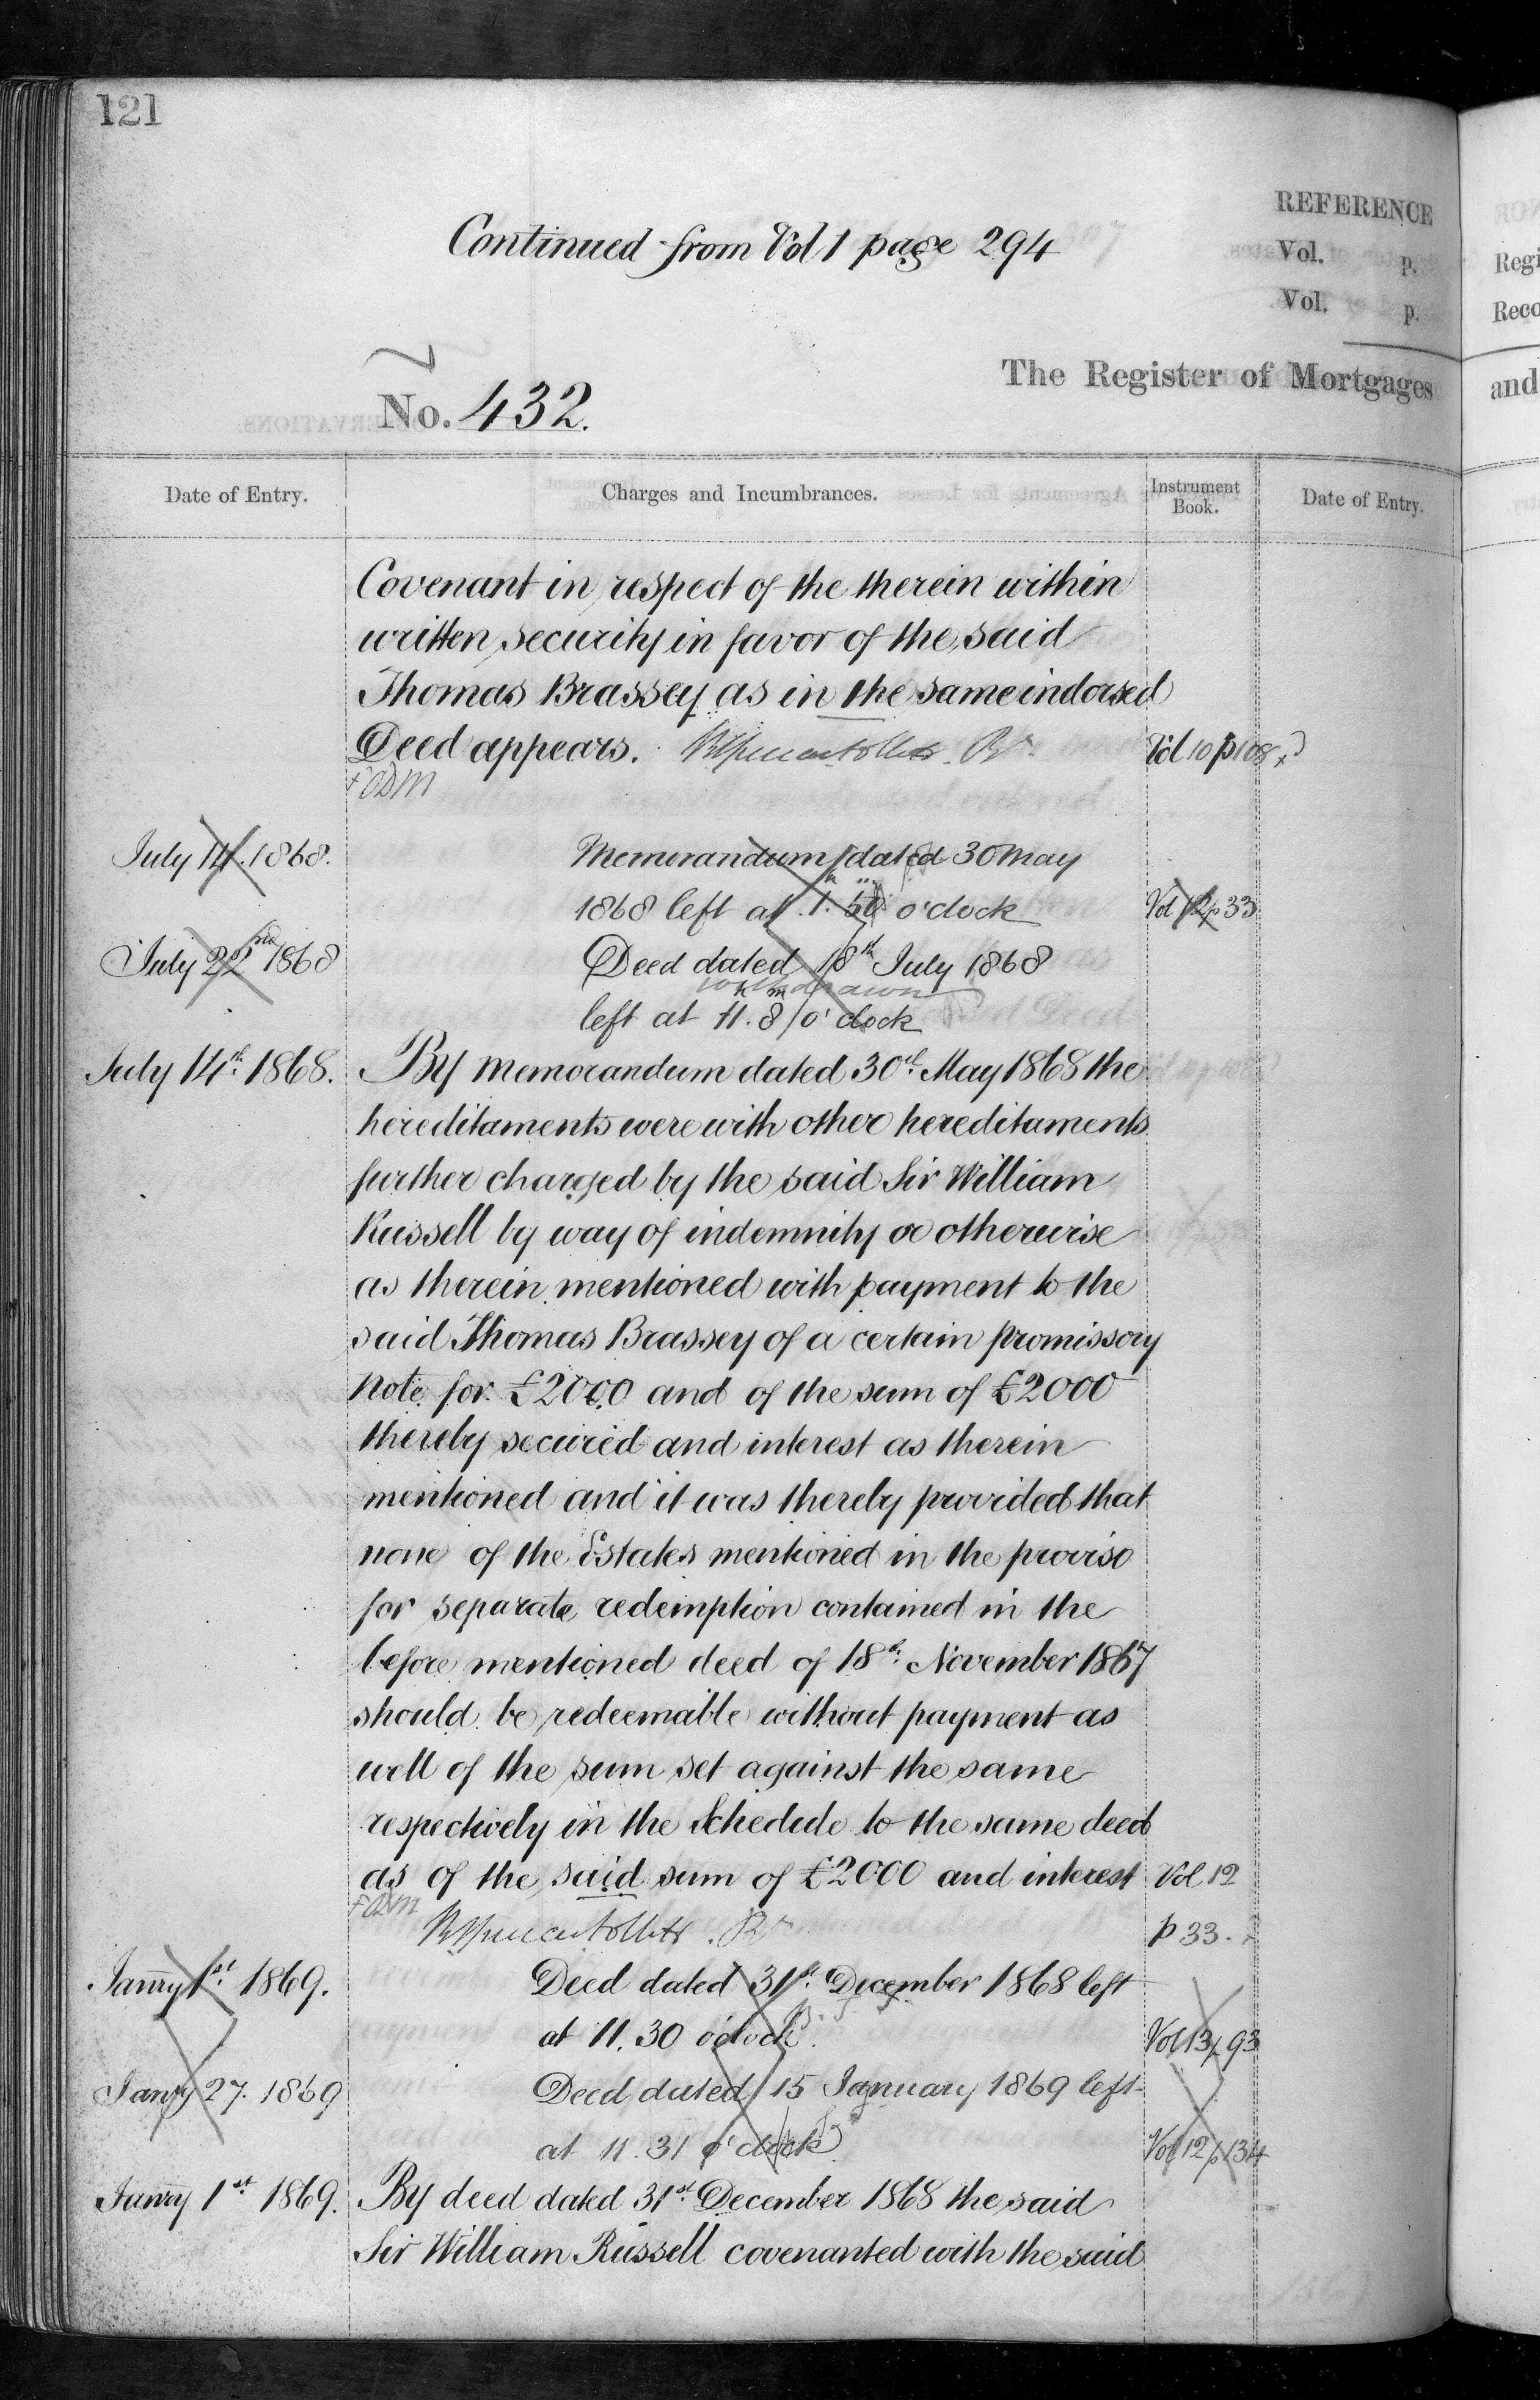 121
Continued from Vol 1 page 294
REFERENCE
Vol. p.
Vol. p.
The Register of Mortgages
No. 432.
Date of Entry. Charges and Incumbrances. Instrument Book. Date of Entry.
Covenant in respect of the therein within
written security in favor of the said
Thomas Brassey as in the same indorsed
Deed appears. Vol 10 p 108
July 14. 1868. Memorandum dated 30 May
1868 left at 1. 50 o'clock Vol 12 p 33
July 22nd 1868 Deed dated 18th July 1868
withdrawn
left at 11. 8 o'clock
July 14th 1868. By memorandum dated 30th May 1868 the
hereditaments were with other hereditaments
further charged by the said Sir William
Russell by way of indemnity or otherwise
as therein mentioned with payment to the
said Thomas Brassey of a certain promissory
note for £2000 and of the sum of £2000
thereby secured and interest as therein
mentioned and it was thereby provided that
none of the Estates mentioned in the proviso
for separate redemption contained in the
before mentioned deed of 18th November 1867
should be redeemable without payment as
well of the sum set against the same
respectively in the Schedule to the same deed
as of the said sum of £2000 and interest Vol 12
p 33.
Janry 1st 1869. Deed dated 31st December 1868 left
at 11. 30 o'clock. Vol 13 p 93
Janry 27. 1869 Deed dated 15 January 1869 left
at 11. 31 o'clock Vol 12 p 134
Janry 1st 1869. By deed dated 31st December 1868 the said
Sir William Russell covenanted with the said
Regi
Reco
and